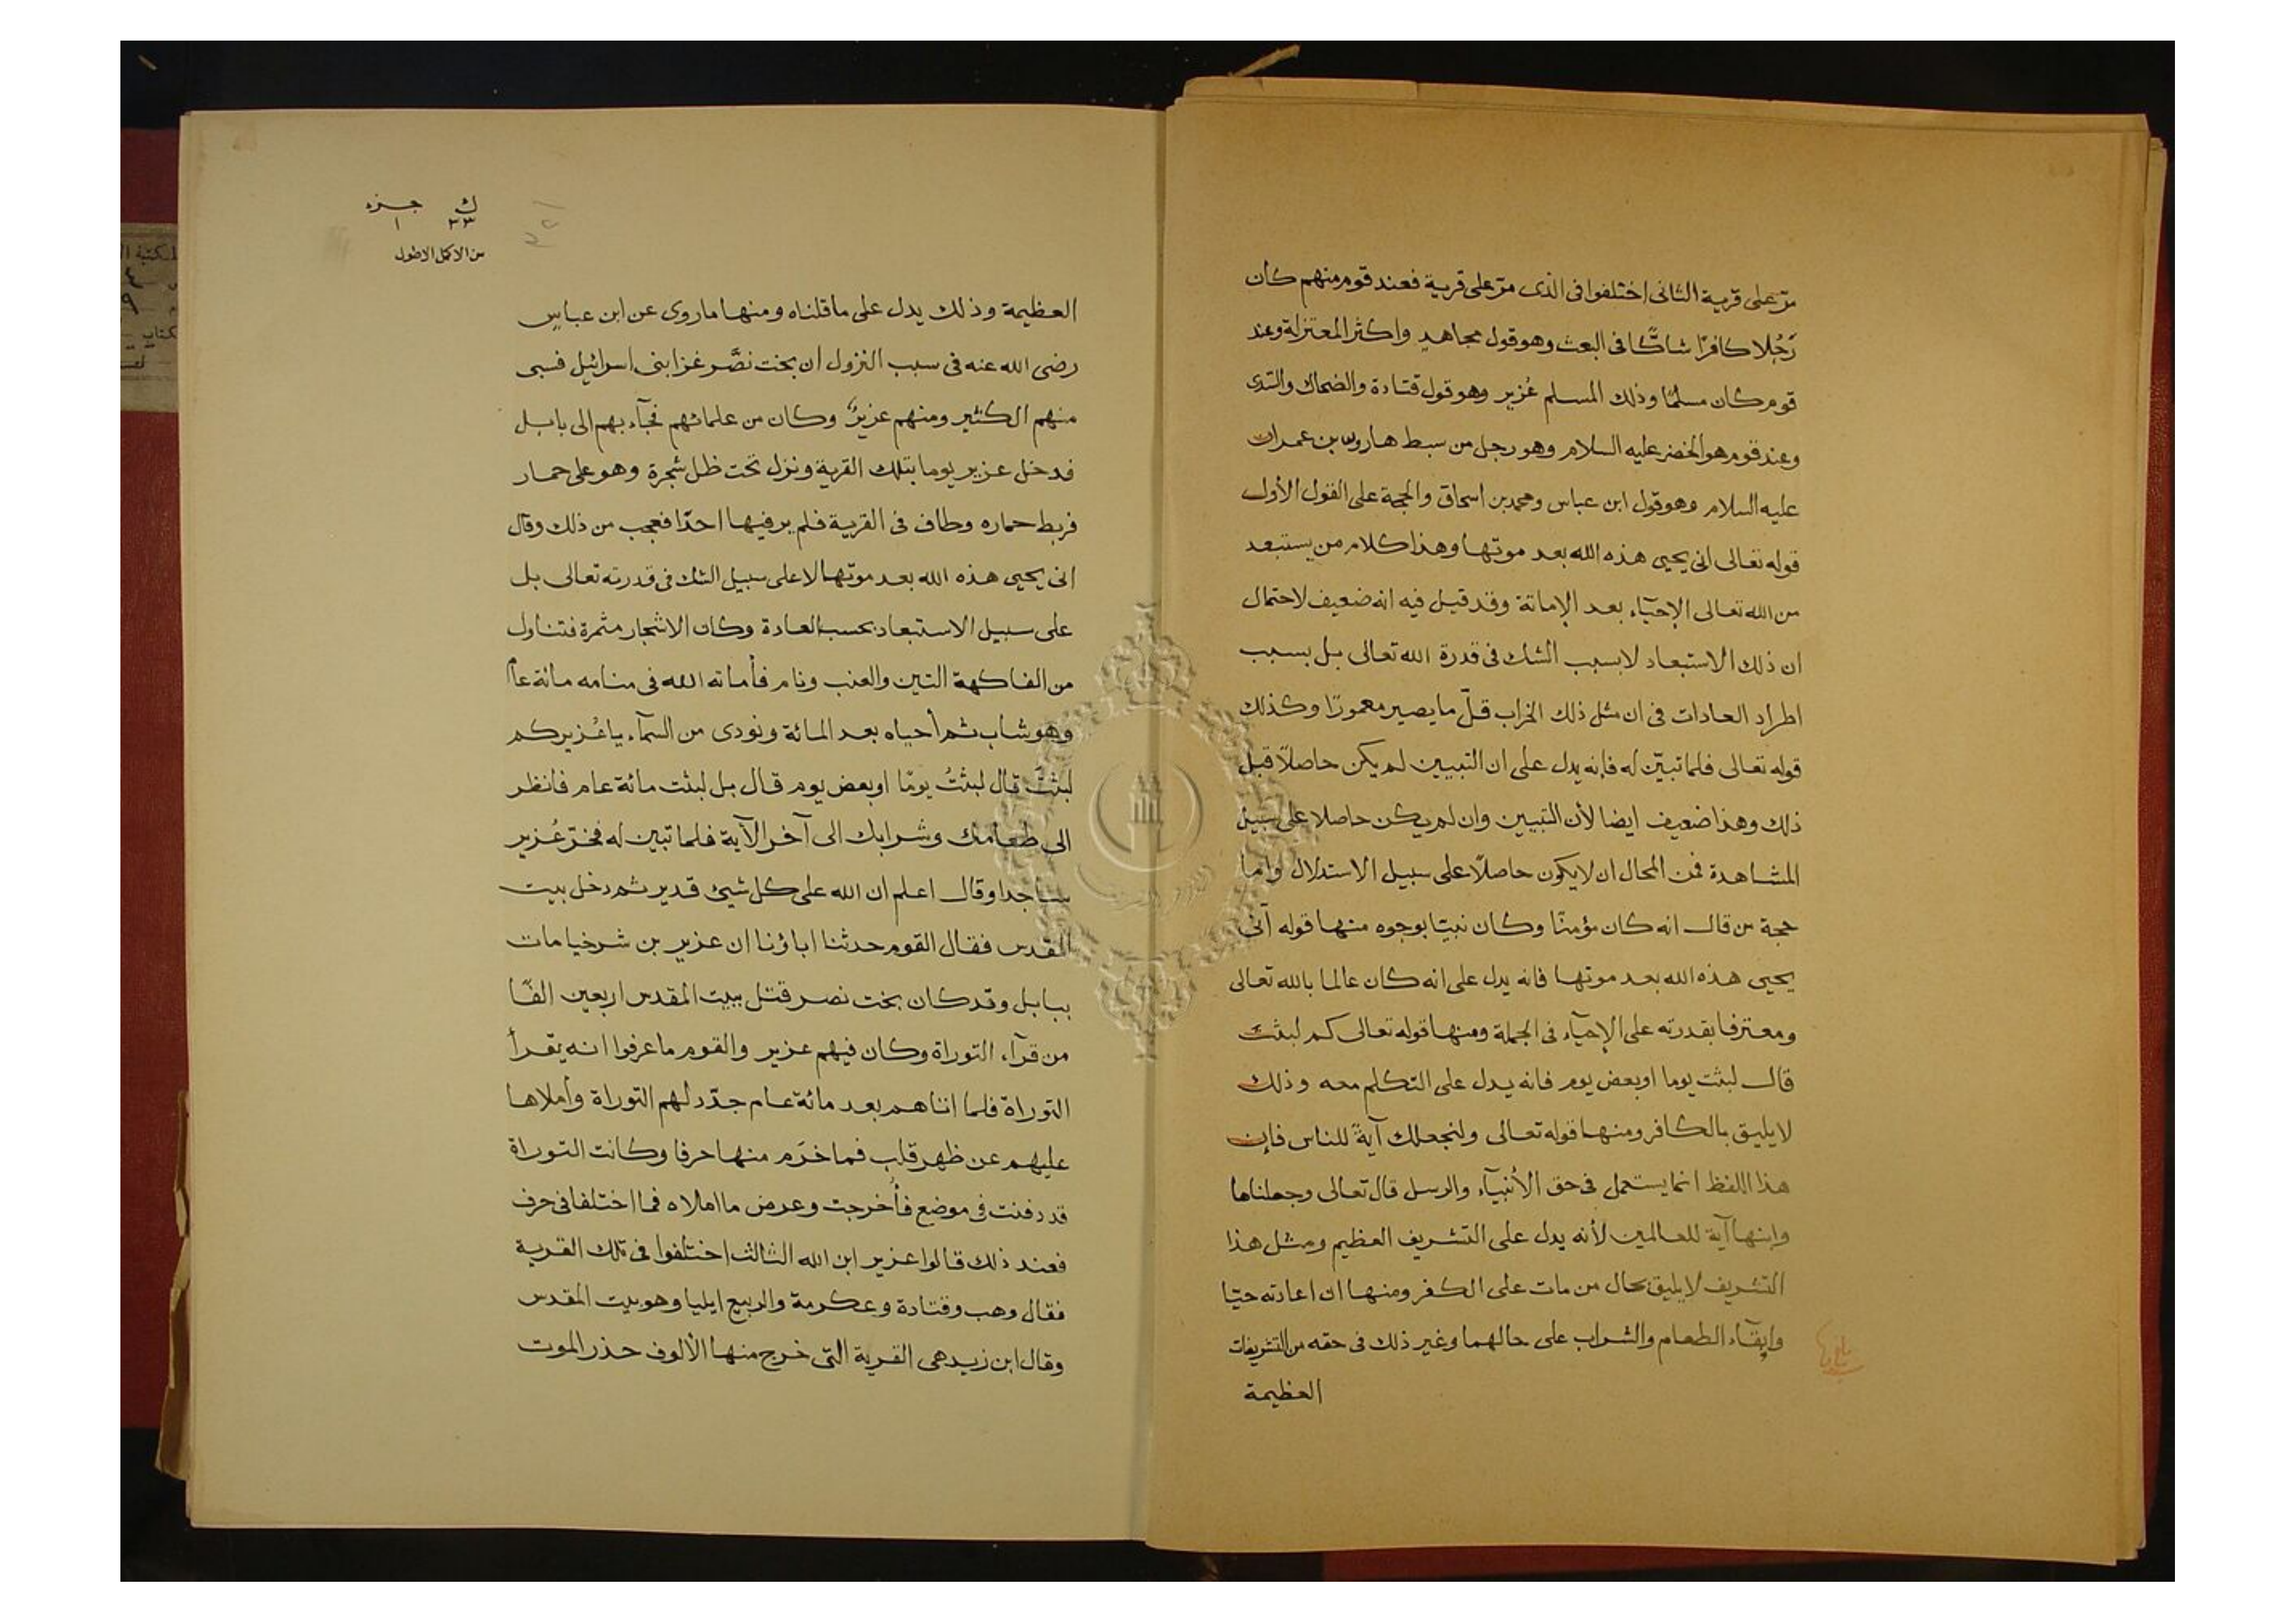 مرّ على قرية الثانى اختلفوا فى الذى مرّ على قرية فعند قوم منهم كان
رَجُلا كافرًا شاكًّا فى البعث وهو قول مجاهد واكثر المعتزلة وعند
قوم كان مسلمًا وذلك المسلم عُزير وهو قول قتادة والضحاك والسّدى
وعند قوم هو الخضر عليه السلام وهو رجل من سبط هارون بن عمران
عليه السلام وهو قول ابن عباس ومحمد بن اسحاق والحجة على القول الأول
قوله تعالى انى يحيى هذه الله بعد موتها وهذا كلام من يستبعد
من الله تعالى الإحيآء بعد الإماتة وقد قيل فيه انه ضعيف لاحتمال
ان ذلك الاستبعاد لا بسبب الشك فى قدرة الله تعالى بل بسبب
اطراد العادات فى ان مثل ذلك الخراب قلّ ما يصير معمورًا وكذلك
قوله تعالى فلما تبيّن له فإنه يدل على ان التبيين لم يكن حاصلاً قبل
ذلك وهذا ضعيف ايضا لأن التبيين وان لم يكن حاصلا على سبيل
المشاهدة فمن المحال ان لا يكون حاصلاً على سبيل الاستدلال واما
حجة من قال انه كان مؤمنًا وكان نبيّا بوجوه منها قوله أنى
يحيى هذه الله بعد موتها فانه يدل على انه كان عالما بالله تعالى
ومعترفا بقدرته على الإحيآء فى الجملة ومنها قوله تعالى كم لبثت
قال لبثت يوما او بعض يوم فانه يدل على التكلم معه وذلك
لا يليق بالكافر ومنها قوله تعالى ولنجعلك آيةً للناس فإن
هذا اللفظ انما يستعمل فى حق الأنبيآء والرسل قال تعالى وجعلناها
وابنها آية للعالمين لأنه يدل على التشريف العظيم ومثل هذا
التشريف لا يليق بحال من مات على الكفر ومنها ان اعادته حيّا
وإبقآء الطعام والشراب على حالهما وغير ذلك فى حقه من التشريفات
العظيمة
ك جزء
٣٣ ١
من الاكمل الاطول
العظيمة وذلك يدل على ما قلناه ومنها ما روى عن ابن عباسٍ
رضى الله عنه فى سبب النزول ان بخت نصَّر غزا بنى اسرائيل فسبى
منهم الكثير ومنهم عزيرٌ وكان من علمائهم فجآء بهم الى بابل
فدخل عزير يوما بتلك القرية ونزل تحت ظل شجرة وهو على حمار
فربط حماره وطاف فى القرية فلم ير فيها احدًا فعجب من ذلك وقال
انى يحيى هذه الله بعد موتها لا على سبيل الشك فى قدرته تعالى بل
على سبيل الاستبعاد بحسب العادة وكان الاشجار مثمرة فتناول
من الفاكهة التين والعنب ونام فأماته الله فى منامه مائة عام
وهو شاب ثم أحياه بعد المائة ونودى من السمآء يا عُزير كم
لبثتَ قال لبثتُ يومًا او بعض يوم قال بل لبثت مائة عام فانظر
الى طعامك وشرابك الى آخر الآية فلما تبين له فخرّ عُزير
ساجدا وقال اعلم ان الله على كل شيئ قدير ثم دخل بيت
المقدس فقال القوم حدثنا اباؤنا ان عزير بن شرخيا مات
ببابل وقد كان بخت نصر قتل ببيت المقدس اربعين الفًا
من قرآء التوراة وكان فيهم عزير والقوم ما عرفوا انه يقرأ
التوراة فلما اتاهم بعد مائة عام جدّد لهم التوراة وأملاها
عليهم عن ظهر قلب فما خرَم منها حرفا وكانت التوراة
قد دفنت فى موضع فأُخرجت وعرض ما املاه فما اختلفا فى حرف
فعند ذلك قالوا عزير ابن الله الثالث اختلفوا فى تلك القرية
فقال وهب وقتادة وعكرمة والربيع ايليا وهو بيت المقدس
وقال ابن زيد هى القرية التى خرج منها الألوف حذر الموت